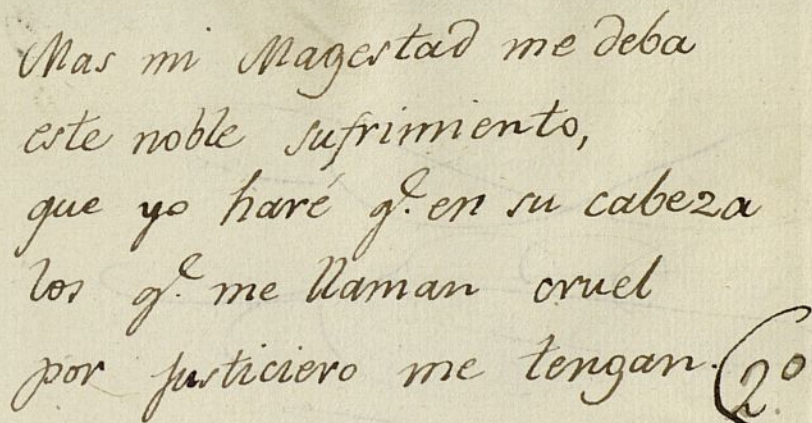 Mas mi Magestad me deba
este noble sufrimiento,
que yo haré q.e en su cabeza
los q.e me llaman cruel
por justiciero me tengan. (2º